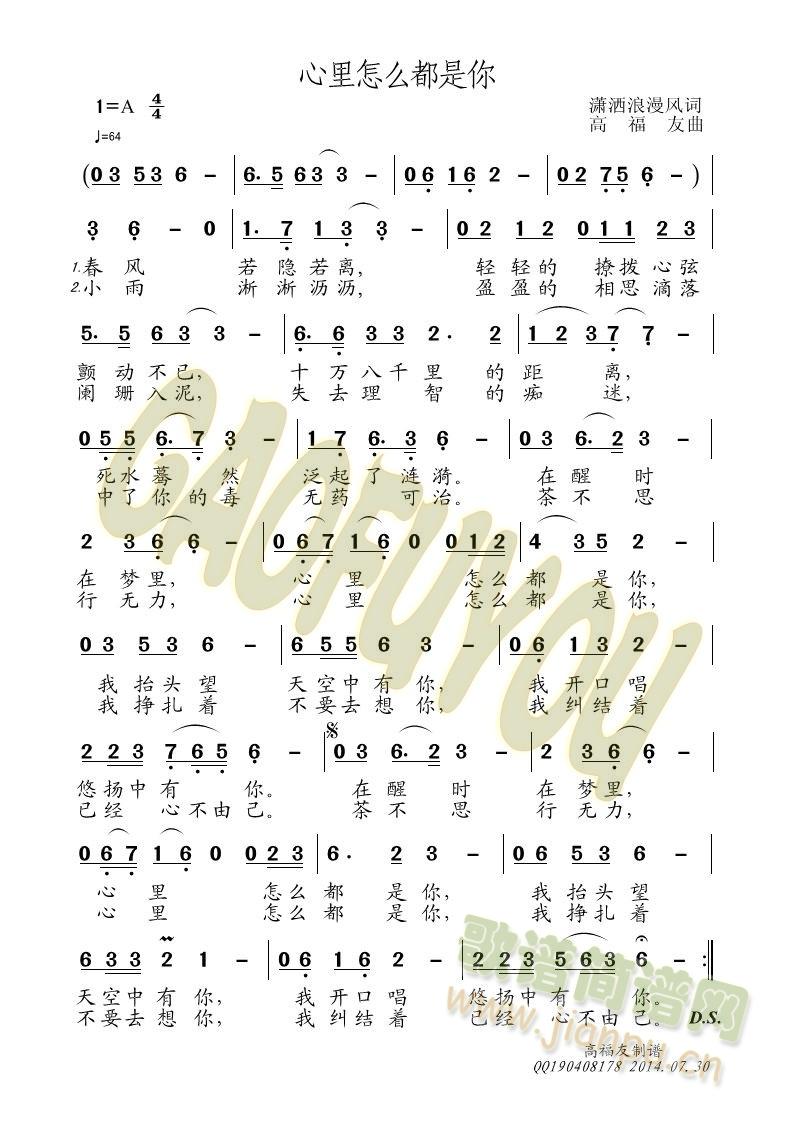 心里怎么都是你
1=A 4/4
潇洒浪漫风词
♩=64
高福友曲
(0 3 5 3 6 - | 6. 5 6 3 3 - | 0 6 1 6 2 - | 0 2 7 5 6 - ) |
3 6 - 0 | 1. 7 1 3 3 - | 0 2 1 2 0 1 1 2 3 |
1.春风 若隐若离, 轻轻的 撩拨心弦
2.小雨 淅淅沥沥, 盈盈的 相思滴落
5. 5 6 3 3 - | 6. 6 3 3 2. 2 | 1 2 3 7 7 - |
颤动不已, 十万八千里 的距 离,
阑珊入泥, 失去理 智 的痴 迷,
0 5 5 6. 7 3 - | 1 7 6. 3 6 - | 0 3 6. 2 3 - |
死水蓦 然 泛起了涟漪。 在醒 时
中了你的毒 无药 可治。 茶不 思
2 3 6 6 - | 0 6 7 1 6 0 0 1 2 | 4 3 5 2 - |
在梦里, 心 里 怎么都 是你,
行无力, 心 里 怎么都 是你,
0 3 5 3 6 - | 6 5 5 6 3 - | 0 6 1 3 2 - |
我抬头望 天空中有你, 我开口唱
我挣扎着 不要去想你, 我纠结着
2 2 3 7 6 5 6 - | 0 3 6. 2 3 - | 2 3 6 6 - |
悠扬中有 你。 在醒 时 在梦里,
已经 心不由己。 茶不 思 行无力,
0 6 7 1 6 0 0 2 3 | 6. 2 3 - | 0 6 5 3 6 - |
心 里 怎么都 是你, 我抬头望
心 里 怎么都 是你, 我挣扎着
6 3 3 2 1 - | 0 6 1 6 2 - | 2 2 3 5 6 3 6 - :||
天空中有你, 我开口唱 悠扬中有 你。
不要去想你, 我纠结着 已经 心不由己。 D.S.
高福友制谱
QQ190408178 2014.07.30
GAOFUYOU
歌谱简谱网
www.jianpu.cn